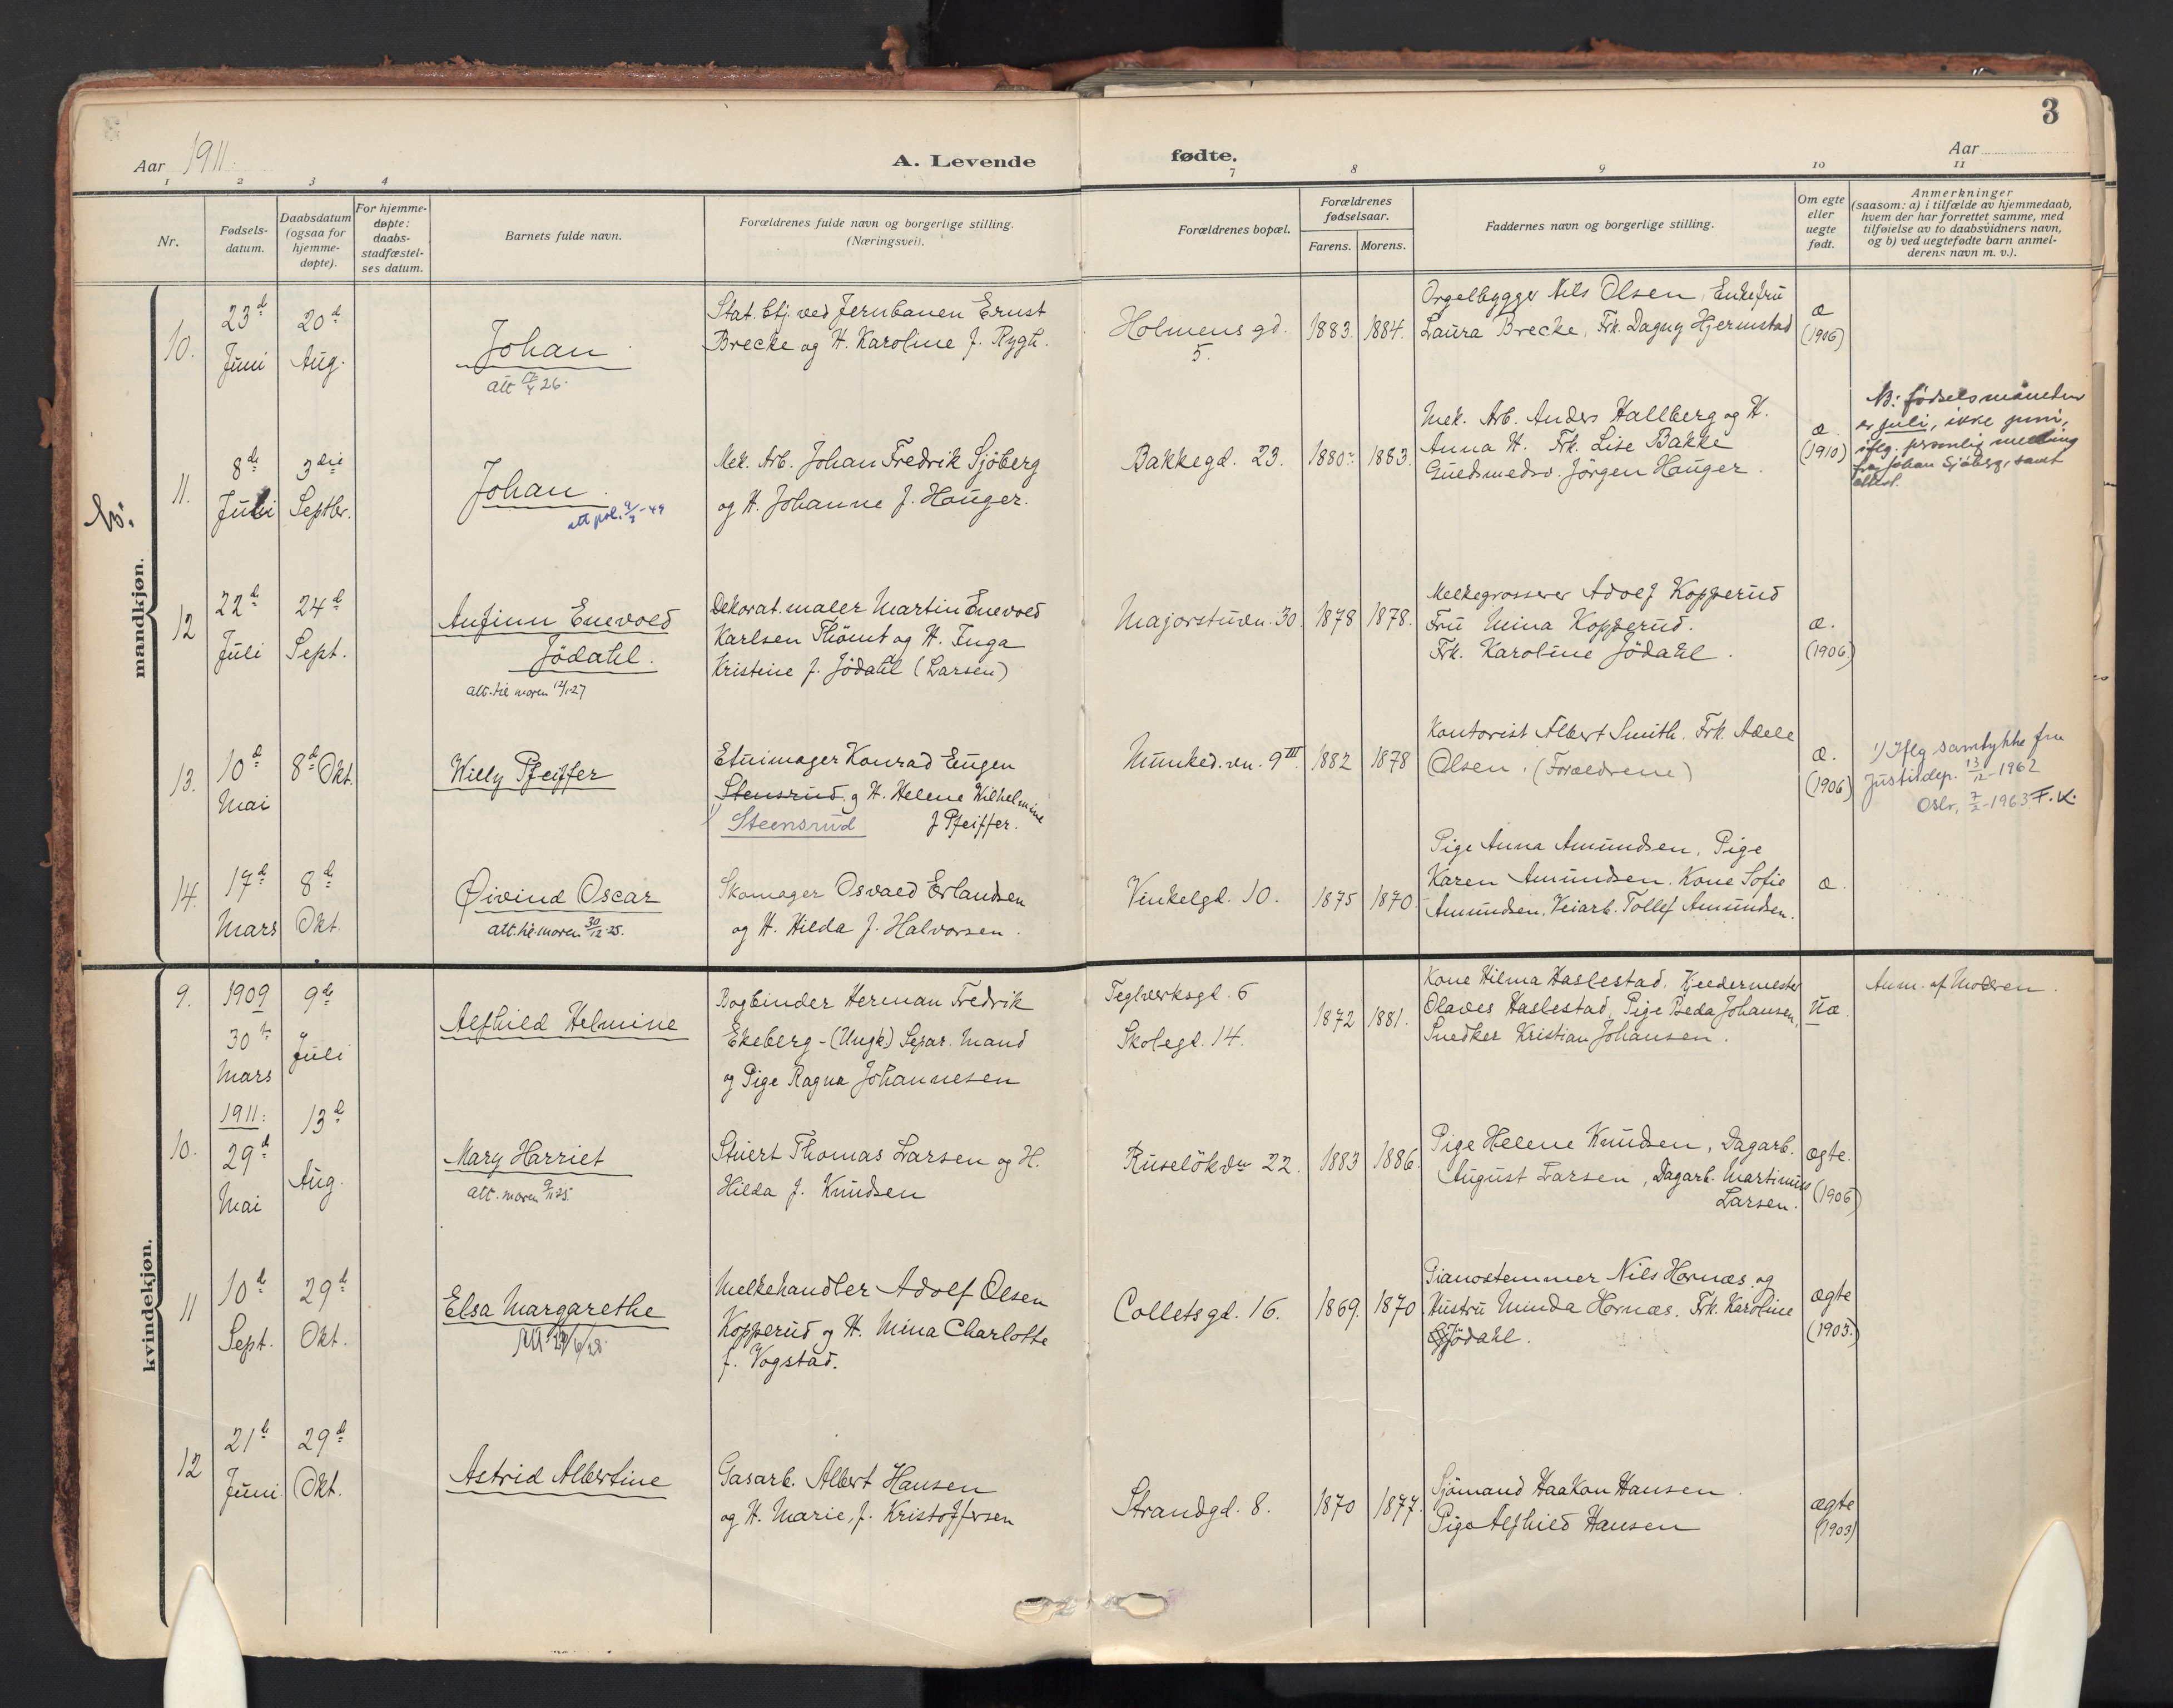 3
Aar 1911.
A. Levende
fødte.
Aar
1 2 3 4 7 8 9 10 11
Nr.
Fødsels-
datum.
Daabsdatum
(ogsaa for
hjemme-
døpte).
For hjemme-
døpte:
daabs-
stadfæstel-
ses datum.
Barnets fulde navn.
Forældrenes fulde navn og borgerlige stilling.
(Næringsvei).
Forældrenes bopæl.
Forældrenes
fødselsaar.
Farens. Morens.
Faddernes navn og borgerlige stilling.
Om egte
eller
uegte
født.
Anmerkninger
(saasom: a) i tilfælde av hjemmedaab,
hvem der har forrettet samme, med
tilføielse av to daabsvidners navn,
og b) ved uegtefødte barn anmel-
derens navn m. v.).
mandkjøn.
10.
23d
Juni
20d
Aug.
Johan
att 26.
Stat. btj. ved Jernbanen Ernst
Brecke og H. Karoline f. Rygh.
Holmens gd.
5.
1883. 1884.
Orgelbygger Nils Olsen, Enkefru
Laura Brecke, Frk. Dagny Hjermstad
æ
(1906)
11.
8de
Juli
3die
Septbr.
Johan.
att pol. 9/7-49
Mek. Arb. Johan Fredrik Sjöberg
og H. Johanne f. Hauger.
Bakkegd. 23.
1880 1883.
Mek. Arb. Anders Hallberg og H.
Anna H. Frk. Lise Bakke
Guldsmedsv. Jörgen Hauger.
æ.
(1910)
NB: fødselsmåneden
er juli, ikke juni,
iflg. personlig melding
fra Johan Sjöberg, samt
12
22d
Juli
24d
Sept.
Anfinn Enevold
Jödahl.
att. til moren 12/1-27
Dekorat. maler Martin Enevold
Karlsen Thömt og H. Inga
Kristine f. Jödahl (Larsen)
Majorstuvn. 30.
1878 1878.
Melkegrosserer Adolf Kopperud
Fru Mina Kopperud.
Frk. Karoline Jödahl.
æ.
(1906)
13.
10d
Mai
8d Okt.
Willy Pfeiffer
Etuimager Konrad Eugen
Stensrud og H. Helene Wilhelmine
1) Steensrud f Pfeiffer.
Munked.vn. 9III
1882 1878
Kontorist Albert Smith. Frk. Adele
Olsen. (Forældrene)
æ.
(1906)
1) Iflg samtykke fra
Justitdep. 13/12-1962
Oslo, 7/2-1963 F.K.
14.
17d
Mars
8d
Okt.
Øivind Oscar
att. til moren 30/12-25.
Skomager Osvald Erlandsen
og H. Hilda f. Halvorsen.
Vinkelgd. 10.
1875 1870.
Pige Anna Amundsen, Pige
Karen Amundsen. Kone Sofie
Amundsen, Veiarb. Tollef Amundsen.
æ.
kvindekjøn.
9.
1909
30te
Mars
9de
Juli
Alfhild Helmine
Bogbinder Herman Fredrik
Ekeberg - (Ungk) Separ. Mand
og Pige Ragna Johannesen
Teglverksgd. 6
Skolegd. 14.
1872 1881.
Kone Hilma Haslestad, Kjeldermester
Olaves Haslestad, Pige Beda Johansen,
Snedker Kristian Johansen.
Uæ.
Anm. af Moderen.
10.
1911:
29d
Mai
13d
Aug.
Mary Harriet
att. moren 9/11 25.
Stuert Thomas Larsen og H.
Hilda f. Knudsen
Ruselökvn 22.
1883 1886.
Pige Helene Knudsen, Dagarb.
August Larsen, Dagarb. Martinius
Larsen.
ægte.
(1906)
11
10d
Sept.
29d
Okt.
Elsa Margarethe
Melkehandler Adolf Olsen
Kopperud og H. Mina Charlotte
f. Vogstad.
Colletsgd. 16.
1869. 1870.
Pianostemmer Nils Hornæs og
Hustru Minda Hornæs. Frk. Karoline
Jödahl.
ægte
(1905.)
12
21de
Juni
29d
Okt.
Astrid Albertine
Gasarb. Albert Hansen
og H. Marie, f. Kristoffersen
Strandgd. 8.
1870 1877.
Sjömand Haakon Hansen.
Pige Alfhild Hansen
ægte
(1903)